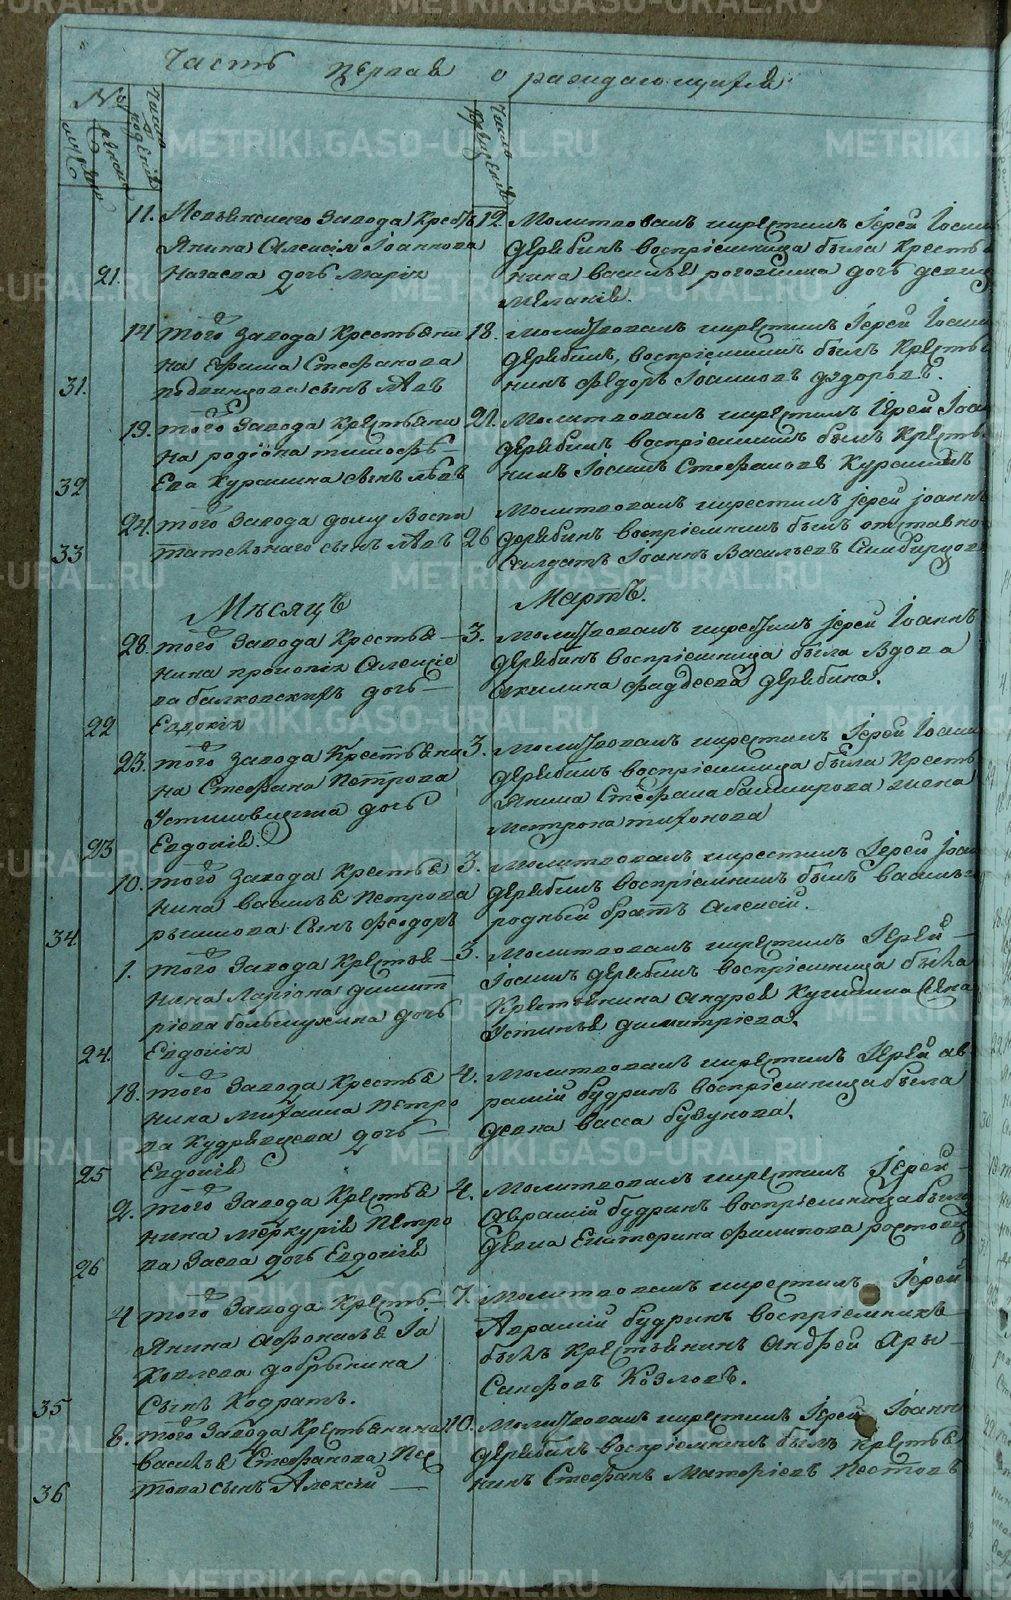 Часть первая о раждающихся
№
Число рождений
Число крещений
11. Невьянского Завода Кресть
янина Алексія Іоаннова
21. Нагаева дочь Марія
12. Молитвовалъ икрестилъ Іерей
Дерябинъ воспріемница была кресть
нина Василья дочь девица
14 того Завода Крестьяни
на Ефима Стефанова
31. сынъ Левъ
18. Молитвовалъ икрестилъ Іерей
Дерябинъ, воспріемникъ былъ Кресть
нинъ Федоръ Іоанновъ
19. того Завода Крестьяни
на родіона тимофѣ
32 ева Курашина сынъ Левъ
21. Молитвовалъ икрестилъ Іерей
Дерябинъ воспріемникъ былъ кресть
нинъ Іоаннъ Стефановъ Курашинъ
24. того Завода дому Воспи
33 тательнаго сынъ Левъ
26 Молитвовалъ икрестилъ іерей іоаннъ
Дерябинъ воспріемникъ былъ отставно
Салдатъ Іоаннъ Васильевъ
Мѣсяцъ Мартъ.
28. того Завода Крестья
нина прокопія Алексіе
ва дочь
22 Евдокія
3. Молитвовалъ икрестилъ іерей Іоаннъ
Дерябинъ воспріемница была вдова
акилина фаддеева Дерябина.
23. того завода Крестьяни
на Стефана Петрова
дочь
23 Евдокія.
3. Молитвовалъ икрестилъ Іерей
Дерябинъ воспріемница была Кресть
янина Стефана жена
Матрона тихонова
10. того завода Крестья
нина василья Петрова
34. сынъ Феодоръ
3. Молитвовалъ икрестилъ Іерей
Дерябинъ воспріемникъ былъ
родный братъ Алексій.
1. того Завода Крестья
нина Ларіона димит
ріева дочь
24. Евдокія
3. Молитвовалъ икрестилъ Іерей
Іоаннъ Дерябинъ воспріемница была
Крестьянина андрея жена
Устинья димитріева.
18. того Завода Крестья
нина Михаила Петро
ва Кудрявцева дочь
25 Евдокія
4. Молитвовалъ икрестилъ Іерей ав
рамій будринъ воспріемница была
девка васса
2. того Завода Крестья
нина Меркурія Петро
26 ва Заева дочь Евдокія
4. Молитвовалъ икрестилъ Іерей
Аврамій будринъ воспріемница была
девка Екатерина филипова
4 того Завода Кресть
янина Афонасья Іа
ковлева добрынина
35 сынъ Кодратъ.
7. Молитвовалъ икрестилъ Іерей
Аврамій будринъ воспріемникъ
былъ крестьянинъ Андрей
Козловъ.
8. того Завода Крестьянина
василья Стефанова Пес
36 това сынъ Алексій
10. Молитвовалъ икрестилъ Іерей Іоаннъ
Дерябинъ воспріемникъ былъ крестья
нинъ Стефанъ Пестовъ
METRIKI.GASO-URAL.RU